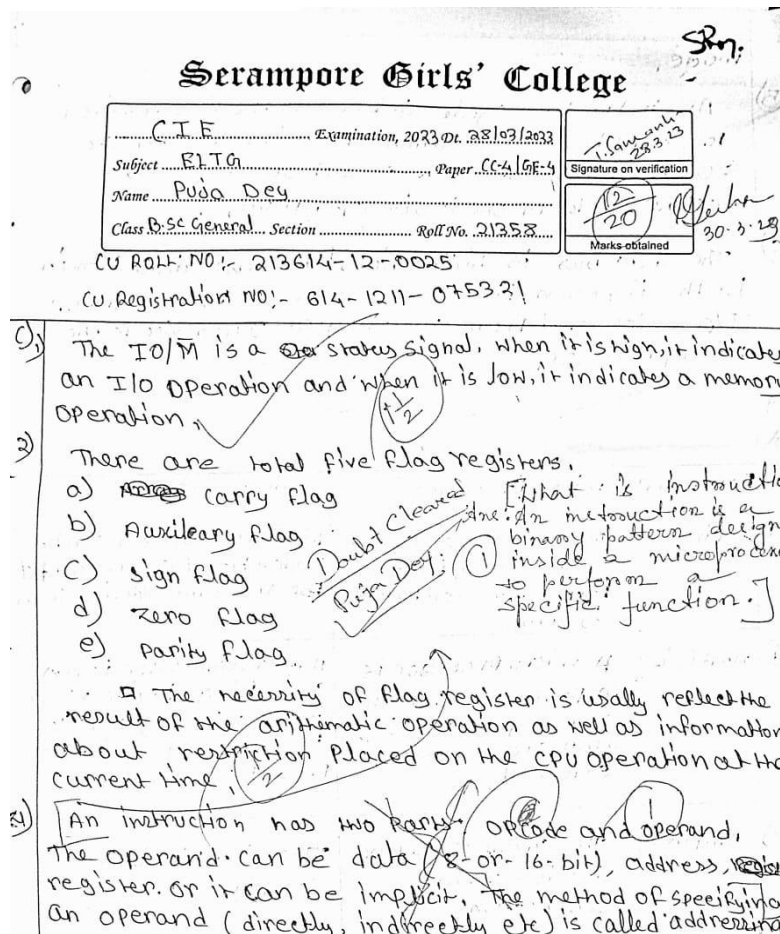 SRoy.
Serampore Girls' College
C I E Examination, 2023 Dt. 28/03/2023
Subject ELTG Paper CC-4/GE-4
Name Puja Dey
Class B.SC General Section Roll No. 21358
T. Samanta
28.3.23
Signature on verification
12/20
30.3.23
Marks obtained
CU ROLL NO:- 213614-12-0025
CU Registration NO:- 614-1211-0753-21
1)
The IO/M̅ is a status signal. when it is high, it indicates
an I/O operation and when it is low, it indicates a memory
operation.
1 1/2
2)
There are total five flag registers.
a) carry flag
b) Auxileary flag
c) sign flag
d) zero flag
e) parity flag
Doubt Cleared
Puja Dey
1
[What is instruction
Ans: An instruction is a
binary pattern design
inside a microprocessor
to perform a
specific function.]
The necessity of flag register is usally reflect the
result of the arithematic operation as well as information
about restriction placed on the CPU operation at the
current time.
1/2
1
An instruction has two parts. opcode and operand.
The operand can be data (8-or-16-bit), address,
register. or it can be implicit. The method of specifying
an operand (directly, indirectly etc) is called addressing